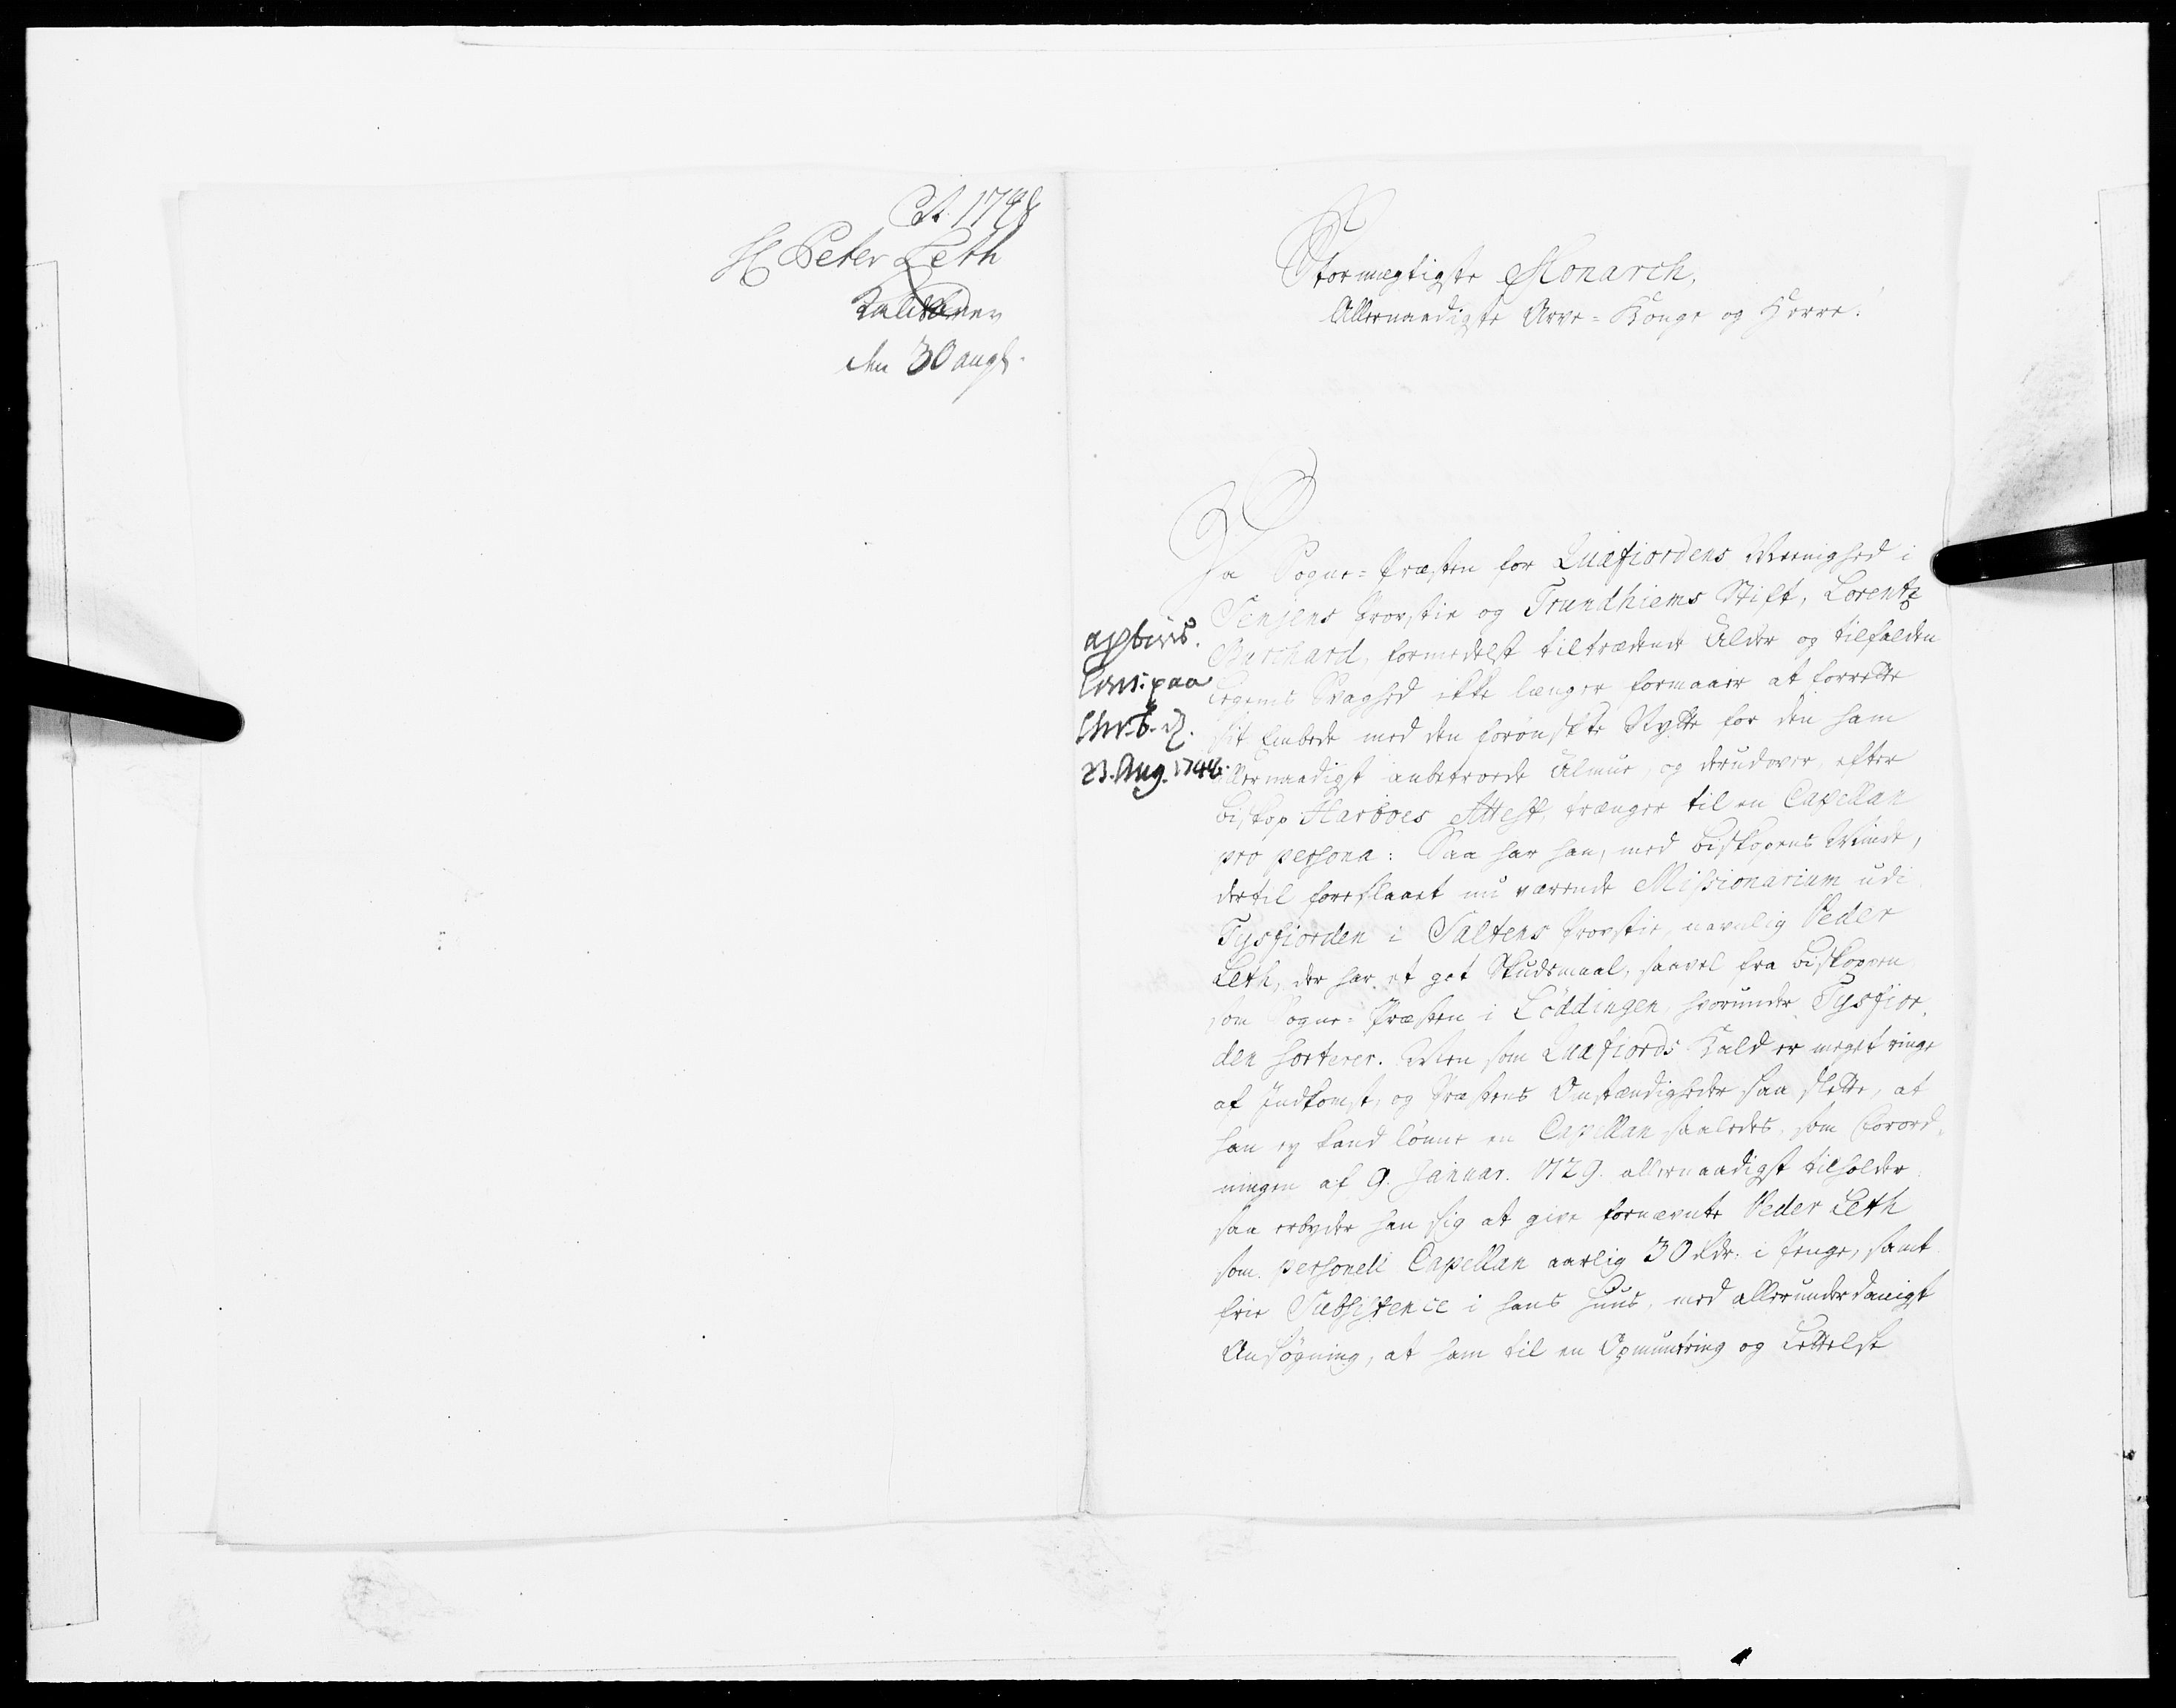 H Peter Leth
den 30 aug.
Stormægtigste Monarch,
Allernaadigste Arve-Konge og Herre!
Da Sogne-Præsten for Qvæfiordens Meenighed i
Senjens Provstie og Trundhiems Stift, Lorentz
Burchard, formedelst tiltrædende Alder og tilfalden
Legems Svaghed ikke længer formaaer at forrette
sit Embede med den forønskte Nytte for den ham
allernaadigst anbetroede Almue, og derudover, efter
Biskop Harboes Attest, trænger til en Capellan
pro persona: Saa har han, med Biskopens Minde,
dertil foreslaaet nu værende Missionarium udi
Tysfiorden i Saltens Provstie, navnlig Peder
Leth, der har et got Skudsmaal, saavel fra Biskoppen
som Sogne-Præsten i Löddingen, hvorunder Tysfior-
den sorterer. Men som Qvæfiords Kald er meget ringe
af Indkomst, og Præstens Omstændigheder saa slette, at
han ey kand lønne en Capellan saaledes, som Forord-
ningen af 9. Januar. 1729. allernaadigst tilholder:
saa erbyder han sig at give fornævnte Peder Leth
som personell Capellan aarlig 30 Rdr. i Penge, samt
frie Subsistence i hans Huus, med allerunderdanigst
Ansøgning, at ham til en Opmuntring og Lettelse
23. Aug. 1748.